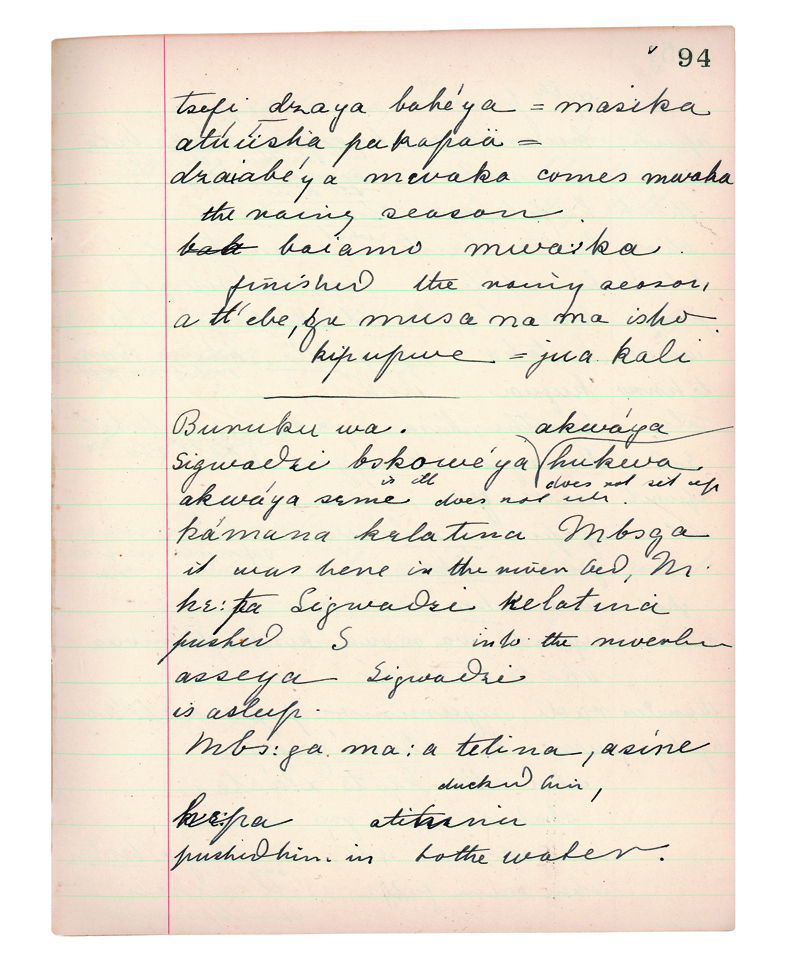 94
tsefi dzaya bahé'ya = masika
atúüsha pakapaä =
dzaiabé'ya mwaka comes mwaka
the rainy season.
bah baiamo mwa:ka.
finished the rainy season,
a tl'ebe, musa na ma isho
kipupwe = jua kali
Bunuku wa.
akwáya
Sigwadzi bskowé'ya hukwa
is ill does not set up
akwáya seme does not
kámana kelatina Mbsga
it was here in the river bed, M.
he:pa Sigwadzi kelatina
pushed S into the riverbed
asseya Sigwadzi
is asleep.
Mbs:ga ma:a telina, asíne
ducked him,
he:pa
pushed him in to the water.